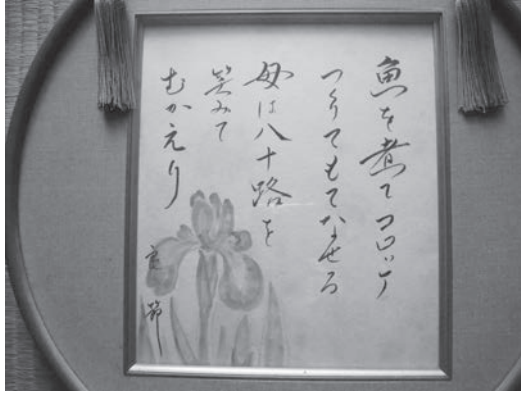 魚を煮てコロッケ
つくりてもてなせる
母は八十路を
笑みて
むかえり